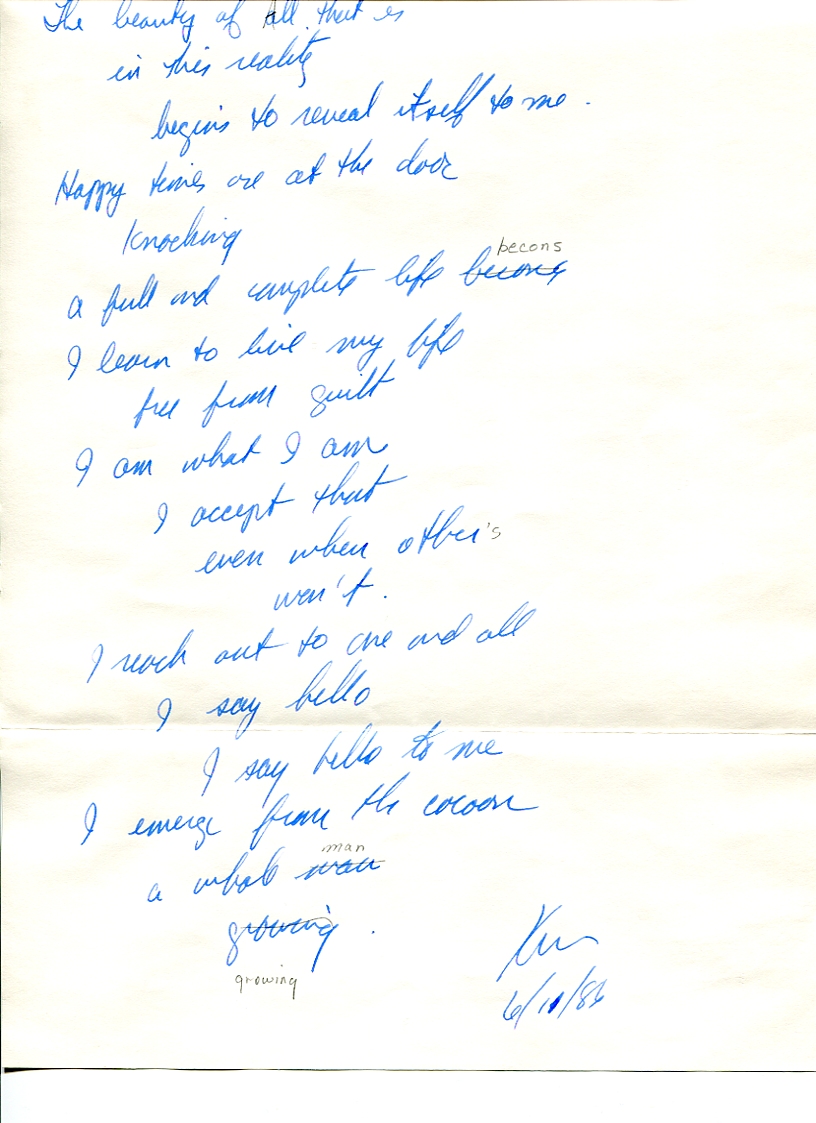 The beauty of All that is
in this reality
begins to reveal itself to me.
Happy times are at the door
Knocking
becons
a full and complete life becons
I learn to live my life
free from guilt
I am what I am
I accept that
even when other's
won't.
I reach out to one and all
I say hello
I say hello to me
I emerge from the cocoon
man
a whole man
growing.
growing
6/11/86